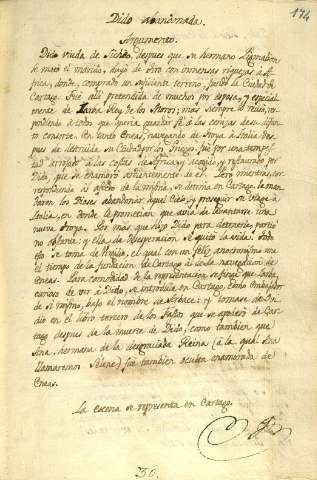 174
Dido abandonada.
Argumento.
Dido viuda de Sicheo, despues que su hermano Pigmalion
le mató el marido, huyó de Tiro con inmensas riquezas à A-
frica, donde, comprado un suficiente terreno, fundó la Ciudad de
Cartago. Fué alli pretendida de muchos por esposa, y especial-
mente de Jarba Rey de los Moros; mas siempre lo rehusó, res-
pondiendo à todos que queria guardar fé à las cenizas de su difun-
to consorte. En tanto Eneas, navegando de Troya à Italia des-
pues de destruida su Ciudad por los Griegos, fué por una tempes-
tad arrojado à las costas de Africa, y acogido, y restaurado por
Dido, que se enamoró ardientemente de el. Pero mientras, cor-
respondiendo al afecto de la misma, se detenia en Cartago, le man-
daron los Dioses abandonar aquel Cielo, y proseguir su viage à
Italia, en donde le prometian que avia de levantarse una
nueva Troya. Por mas que hizo Dido para detenerle, partió
no obstante: y ella de desesperacion se quitó la vida. Todo
esto se toma de Virgilio, el qual con un feliz anacronismo une
el tiempo de la fundacion de Cartago al de la navegacion de
Eneas. Para comodidad de la representacion se finge que Jarba,
curioso de ver à Dido, se introduxo en Cartago, como Embajador
de si mismo, bajo el nombre de Arbace: y tomase de Ovi-
dio en el libro tercero de los Fastos que se apoderó de Car-
tago despues de la muerte de Dido, como tambien que
Ana, hermana de la desgraciada Reina (à la qual
llamaremos Selene) fué tambien oculta enamorada de
Eneas.
La escena se representa en Cartago.
30.